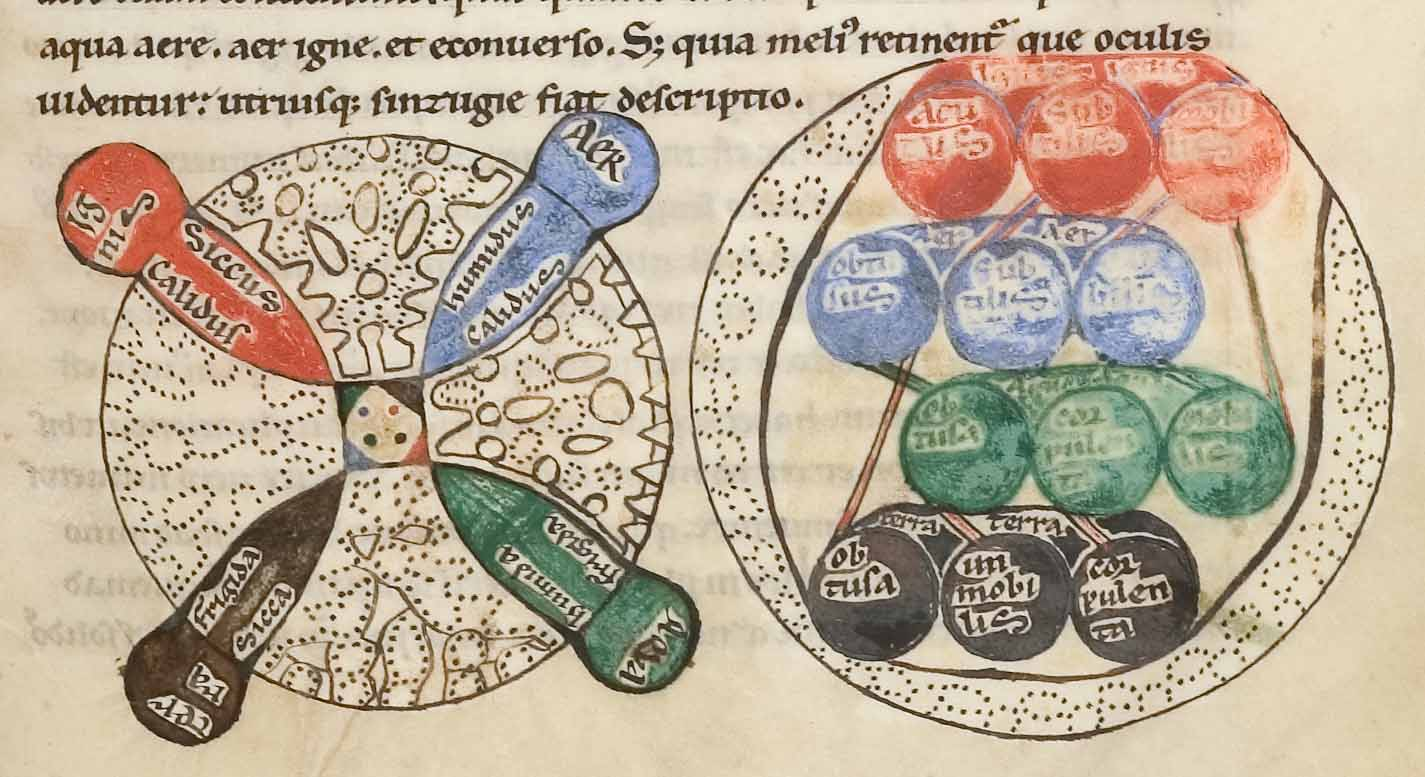 aqua aere. aer igne. et econuerso. S; quia meliꝰ retinent̄ que oculis
uidentur: utriusq; sinzugie fiat descriptio.
IG
nis
Siccus
Calidus
AER
humidus
calidus
frigida
Sicca
Ter
ra
frigida
humida
Aqua
Ignis Ignis
Acu
tus
Sub
tilis
mobi
lis
Aer Aer
obtu
sus
Sub
tilis
bilis
Ob
tusa
cor
pulen
ta
mobi
lis
terra terra
ob
tusa
im
mobi
lis
cor
pulen
ta